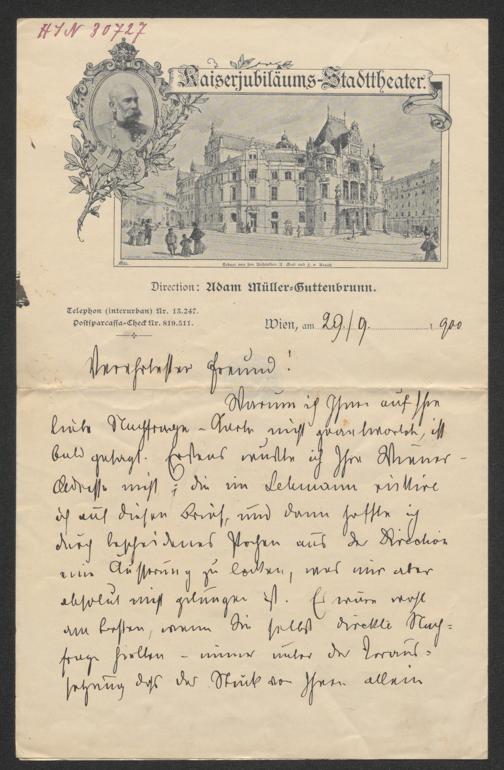 HIN 30727
Kaiserjubiläums-Stadttheater.
Direction: Adam Müller-Guttenbrunn.
Telephon (interurban) Nr. 13.247.
Postsparcassa-Check Nr. 819.511.
Wien, am 29./9. 900
Verehrtester Freund!
Warum ich Ihnen auf Ihre
liebe Nachfrage-Karte nicht geantwortet, ist
bald gesagt. Erstens wußte ich Ihre Wiener-
Adresse nicht; die im Lehmann
ich auf diesen Brief, und dann hoffte ich
durch bescheidenes Pochen aus der Direction
eine Äußerung zu locken, was mir aber
absolut nicht gelungen ist. Es wäre wohl
am besten, wenn Sie selbst direkte Nach-
frage hielten – immer unter der Voraus-
setzung daß das Stück von Ihnen allein